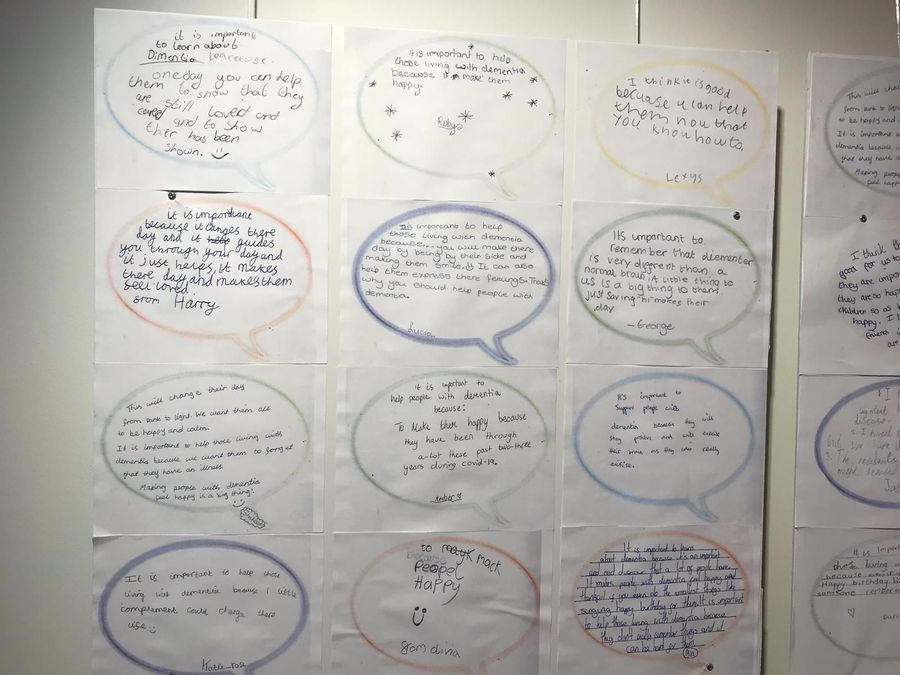 it is important
to learn about
Dimentia beacause
oneday you can help
them to show that they
are still loved and
cared and to show
ther has been
shown.
It is important to help
those living with dementia
because it make them
happy.
Ruby
I think it is good
becuase u can help
them now that
you know how to.
Lexys
it is important
because it canges there
day and it guides
you through your day and
it just helps, it makes
there day and makes them
feel loved
from Harry
It's important to help
those living with dementia
because... you will make there
day by being by their side and
making them smile. It can also
help them express there feelings. That's
why you should help people with
dementia.
Lucia
It's important to
remember that diementer
is very different than a
normal brain. A little thing to
us is a big thing to them
just saying hi makes their
day
-George
This will change their day
from dark to light. We want them all
to be happy and calm.
It is important to help those living with
dementia because we want them to forget
that they have an illness.
Making people with dementia
feel happy is a big thing!
It is important to
help people with dementia
because:
To Make them happy because
they have been through
a-lot these past two-three
years during covid-19.
It's important to
support people with
dementia because they will
stay positive and will exercise
their brains as they who really
It is important to help those
living with dementia because 1 little
complement could change there
Katie-rose
to mack
Peopol
Happy
from dina
It is important to learn
about dementia because it's an important
and sad disease that a lot of people have.
It makes people with dementia feel happy and
if you even do the smallest things like
singing happy birthday to them. It is important
to help those living with dementia because
they don't remember things and it
can be hard for them.
This will
from dark to light
to be happy and
It is important
dementia because
that they have a
Making people
feel happy
I think th
good for us to
they are
they are so hap
children so as
happy. I
friends
are
disease.
but I'm
3. The residents
might
It is impor
those living w
because
Happy birthday
someone remember